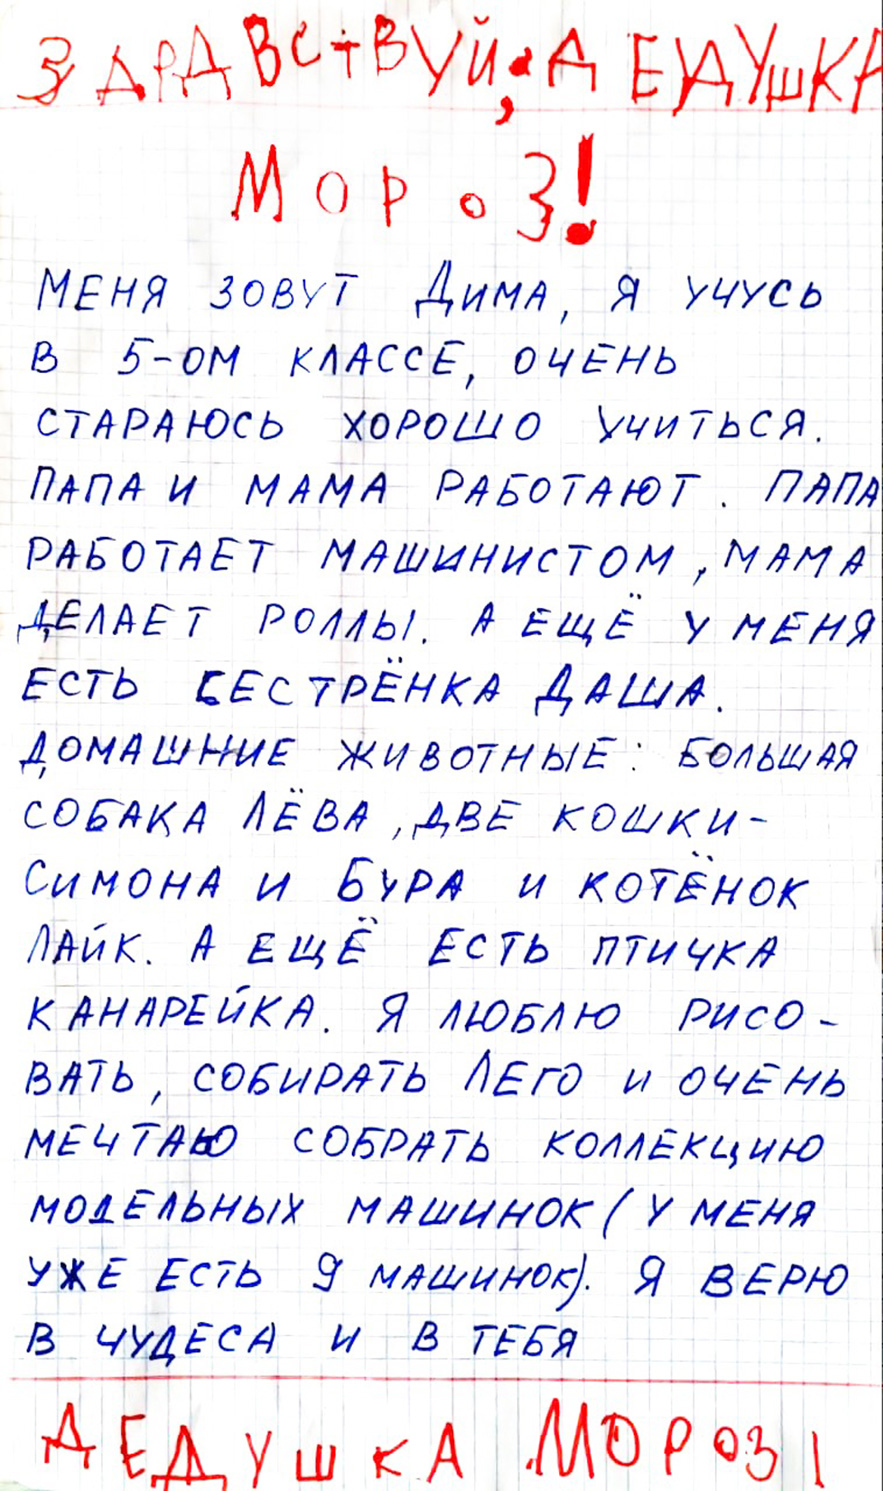 ЗДРАВСТВУЙ, ДЕДУШКА
МОРОЗ!
МЕНЯ ЗОВУТ ДИМА, Я УЧУСЬ
В 5-ОМ КЛАССЕ, ОЧЕНЬ
СТАРАЮСЬ ХОРОШО УЧИТЬСЯ.
ПАПА И МАМА РАБОТАЮТ. ПАПА
РАБОТАЕТ МАШИНИСТОМ, МАМА
ДЕЛАЕТ РОЛЛЫ. А ЕЩЁ У МЕНЯ
ЕСТЬ СЕСТРЁНКА ДАША.
ДОМАШНИЕ ЖИВОТНЫЕ: БОЛЬШАЯ
СОБАКА ЛЁВА, ДВЕ КОШКИ-
СИМОНА И БУРА И КОТЁНОК
ЛАЙК. А ЕЩЁ ЕСТЬ ПТИЧКА
КАНАРЕЙКА. Я ЛЮБЛЮ РИСО-
ВАТЬ, СОБИРАТЬ ЛЕГО И ОЧЕНЬ
МЕЧТАЮ СОБРАТЬ КОЛЛЕКЦИЮ
МОДЕЛЬНЫХ МАШИНОК (У МЕНЯ
УЖЕ ЕСТЬ 9 МАШИНОК). Я ВЕРЮ
В ЧУДЕСА И В ТЕБЯ
ДЕДУШКА МОРОЗ!